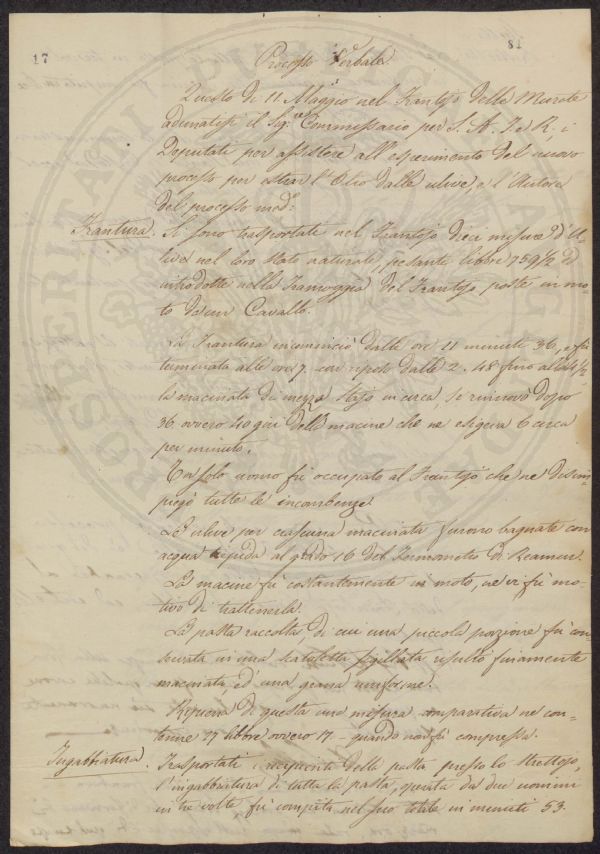 17
81
Processo Verbale
Questo dì 11. Maggio nel Frantojo delle Murate
adunatisi il Sig.re Commissario per S. A. I. e R. i
Deputati per assistere all'esperimento del nuovo
processo per estrar l'Olio dalle ulive, e l'Autore
del processo med.o
Frantura. Si sono trasportate nel Frantojo dieci misure d'U-
live nel loro stato naturale, pesante libbre 759 1/2 ed
introdotte nella Tramoggia del Frantojo posto in mo-
to da un Cavallo.
La Frantura incominciò dalle ore 11 minuti 36, e fù
terminata alle ore 7. con riposo dalle 2. 48 fino alle 4 1/2
la macinata di mezzo stajo in circa, si rinnovò dopo
36. ovvero 40 giri delle macine che ne esigeva 6 circa
per minuto.
Un solo uomo fù occupato al Frantojo che ne disim-
piegò tutte le incombenze.
Le ulive per ciascuna macinata furono bagnate con
acqua tepida al grado 16 del Termometro di Reamur.
La macine fù costantemente in moto, ne vi fù mo-
tivo di trattenerla.
La pasta raccolta, di cui una piccola porzione fù con-
servata in una scatoletta sigillata risultò finamente
macinata, ed' una grana uniforme.
Ripiena di questa una misura comparativa ne con-
tenne 27 libbre ovvero 17 - quando non fù compressa.
Ingabbiatura. Trasportati i recipienti della pasta presso lo Strettojo,
l'ingabbiatura di tutta la pasta, operata da due uomini
in tre volte fù compita nel suo totale in minuti 53.